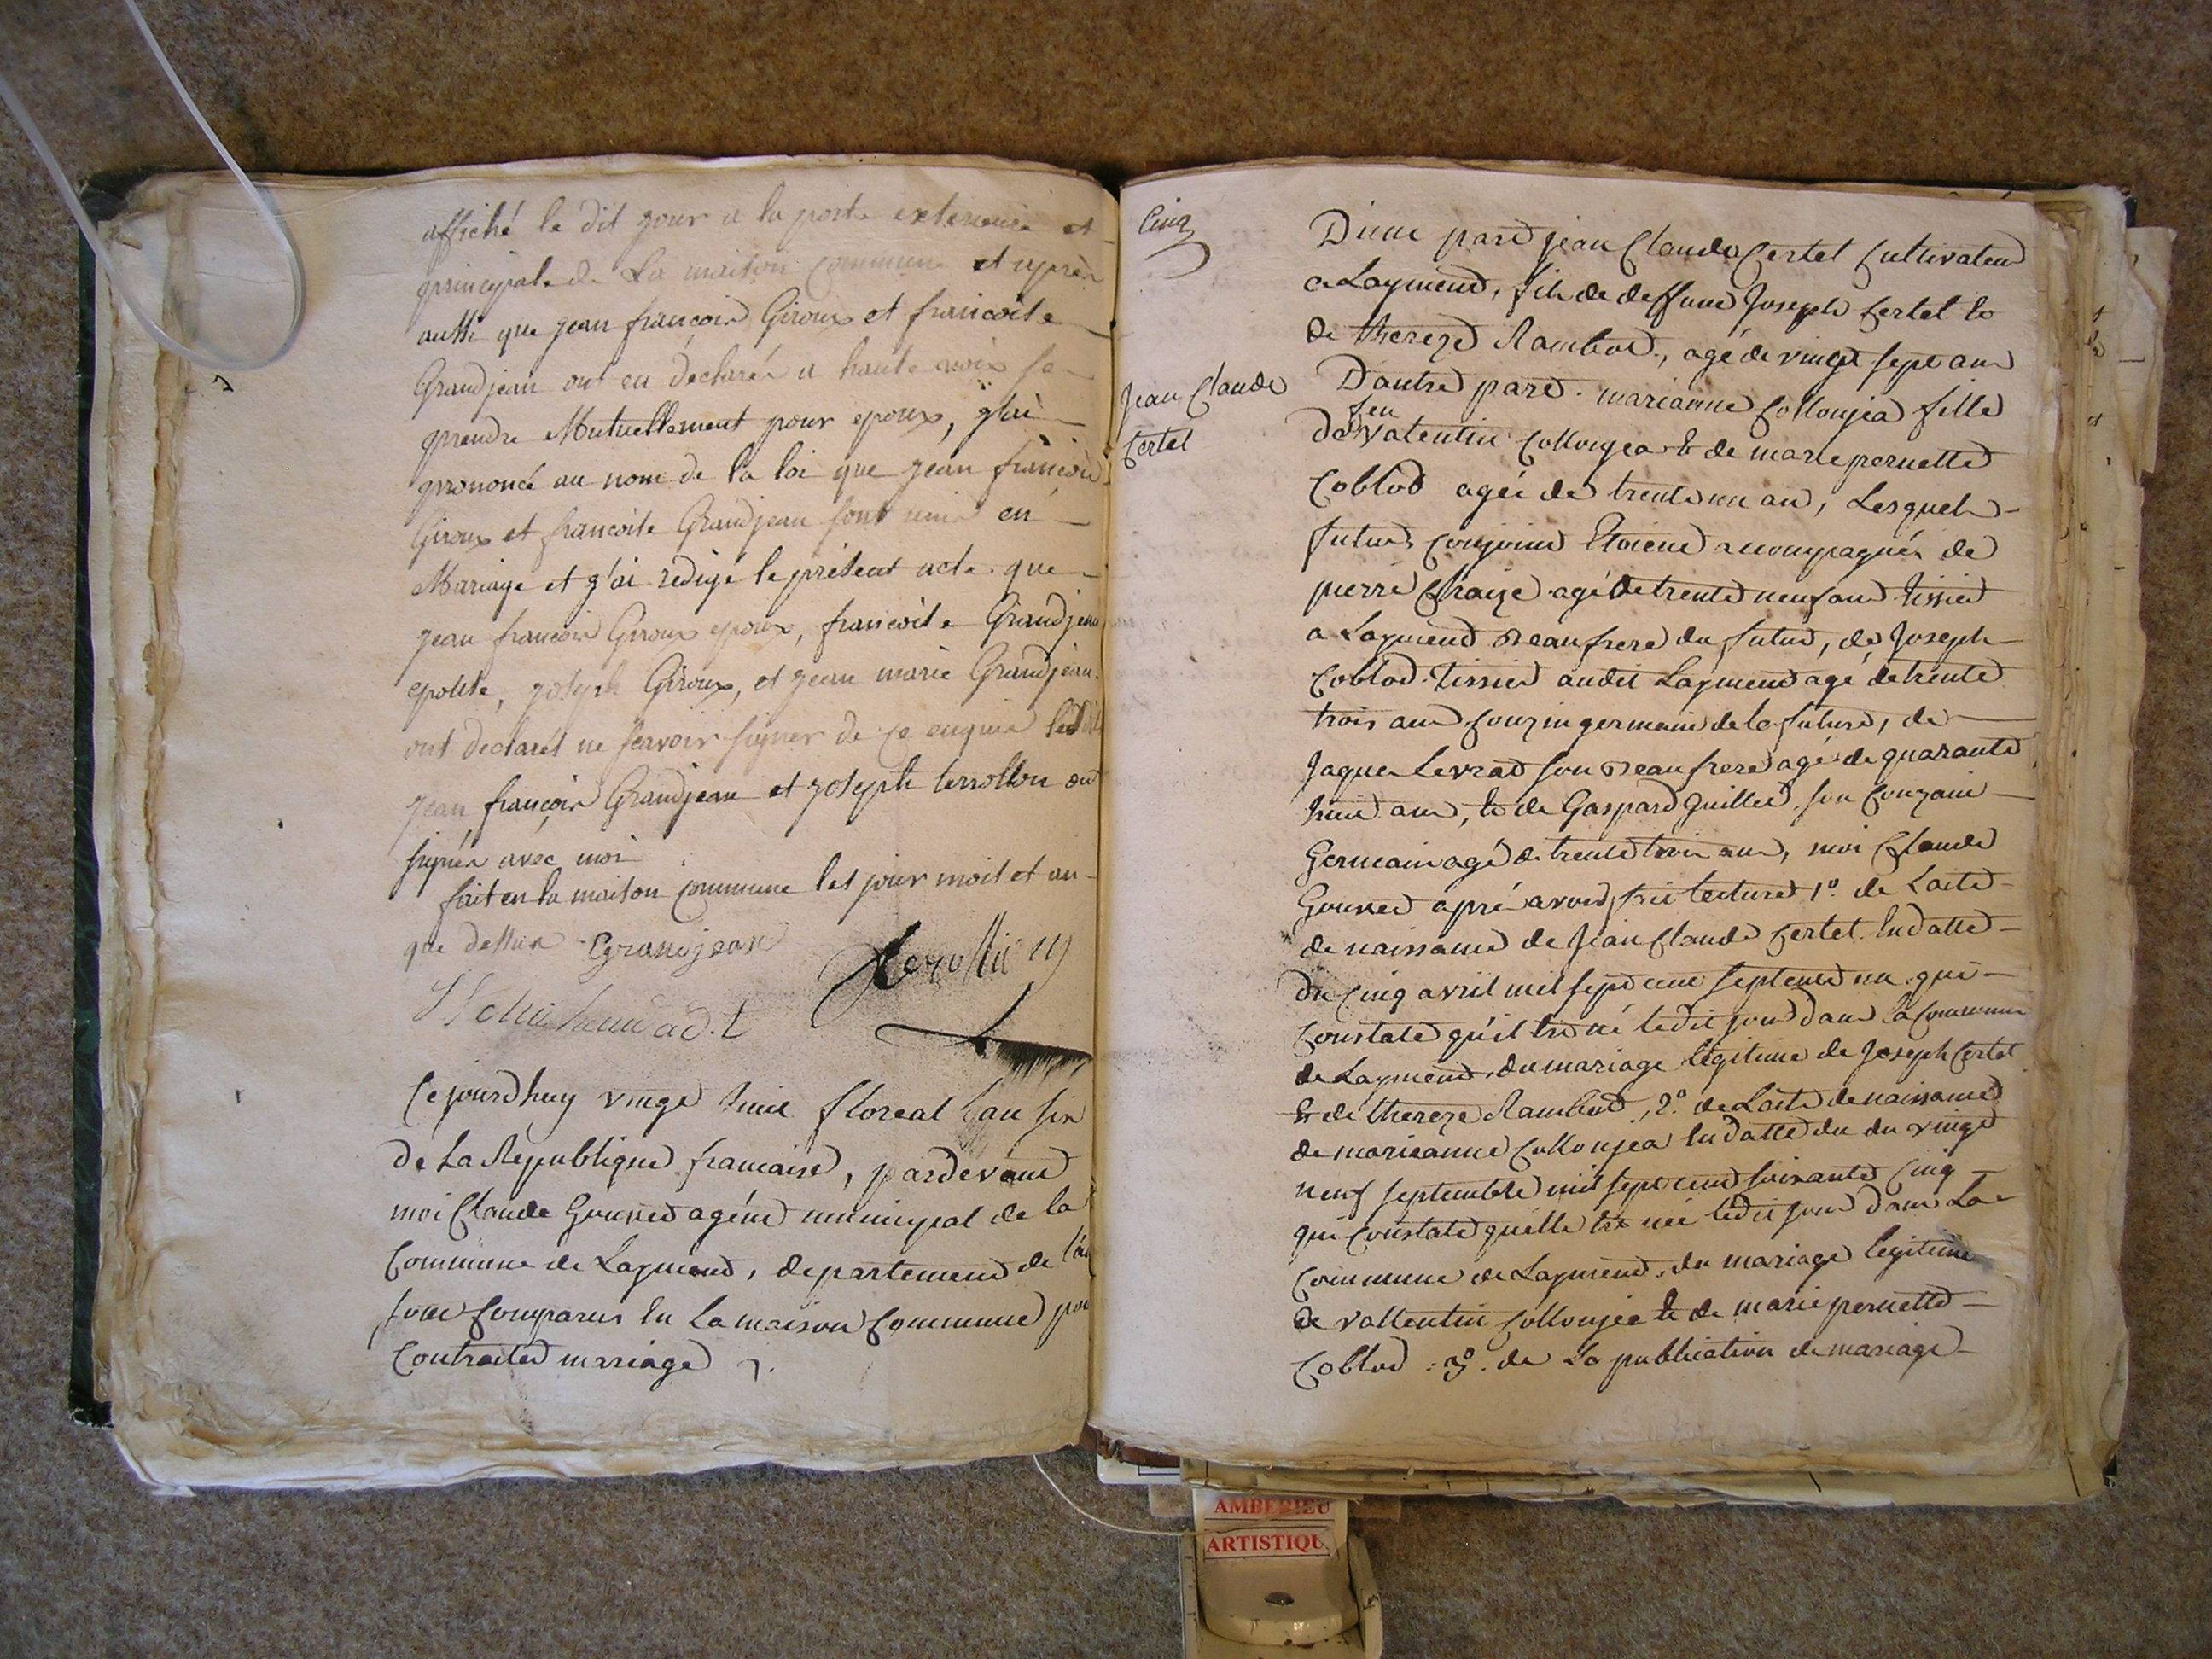 affiché le dit jour a la porte exterieure et
principale de La maison Commune et après
aussi que jean françois Giroux et francoise
Grandjean ont eu declarés a haute voix se
prendre Mutuellement pour epoux, j'ai
prononcé au nom de la loi que jean françois
Giroux et francoise Grandjean sont unis en
Mariage et j'ai redigé le présent acte que
jean françois Giroux epoux, francoise Grandjean
epouse, joseph Giroux, et jean marie Grandjean
ont declarés ne scavoir signer de ce enquis
jean françois Grandjean et joseph terrollion ont
signés avec moi
fait en la maison commune les jour mois et an
que dessus Cgrandjean
Ce jourdhuy vingt huit floreal lan six
de La Republique francaise, pardevant
moi Claude Gounet agent municipal de la
Commune de Laymend, departement de l'ain
sont Comparus en La maison Commune pour
Contracter mariage
Cinq
Jean Claude
Certet
Dune part jean Claude Certet Cultivateur
a Laymend, fils de deffunt Joseph Certet et
de thereze Rambod, agé de vingt sept ans
Dautre part marianne Collonjea fille
feu
de valentin Collonjea et de marie pernette
Coblod agée de trente un an, Lesquels
futurs conjoints Etoient accompagnés de
pierre Chaize agé de trente neuf ans tissier
a Laymend Beaufrere du futur, de Joseph
Coblod tissier audit Laymend agé de trente
trois ans Couzin germain de la future, de
Jaques Levrat son Beaufrere agé de quarante
huit ans, et de Gaspard Guillet son Couzain
Germain agé de trente trois ans, moi Claude
Gounet aprés avoir fait lecture 1º de Lacte
de naissance de Jean Claude Certet En datte
du Cinq avril mil sept cent septente un qui
Constate quil Est né ledit jour dans la Commune
de Laymend du mariage légitime de Joseph Certet
Et de thereze Rambod, 2º de Lacte de naissance
de marieanne Collonjea En datte du du vingt
neuf septembre mil sept cent soixante Cinq
qui Constate quelle Est née ledit jour dans La
Commune de Laymend du mariage legitime
de vallentin Collonjea Et de marie pernette
Coblod : 3º. de La publication de mariage
AMBERIEU
ARTISTIQU